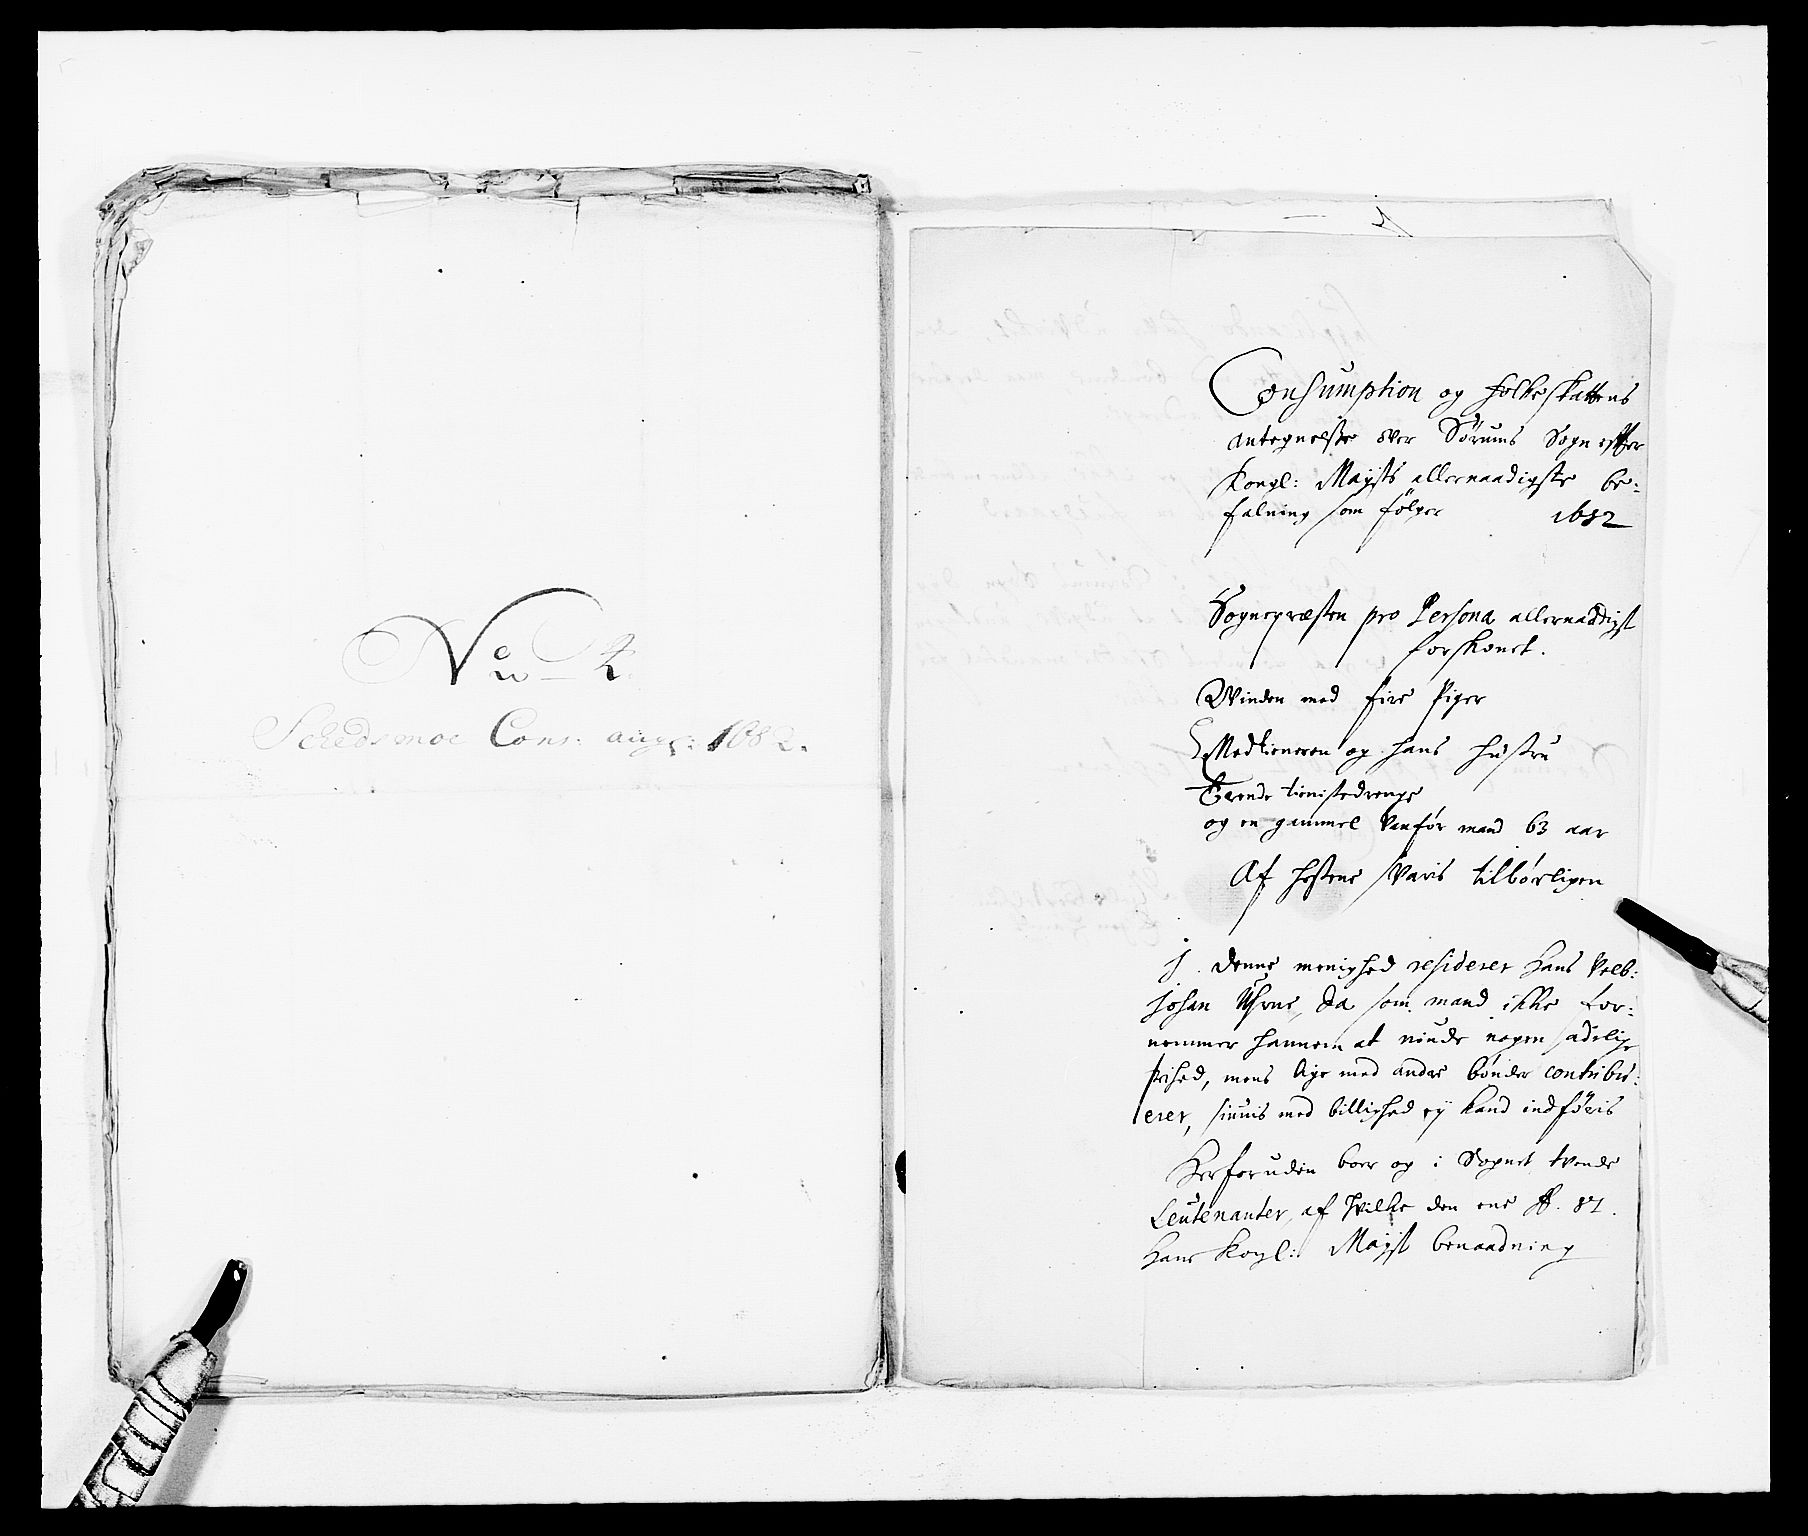 No 4.
Schedsmoe Cons: ang: 1682.
Consumption og folkeskattens
antegnelse over Sørums Sogn efter
Kongl: Maysts allernaadigste be:
falning som følger 1682
Sognepræsten pro Persona allernaadigst
forskonet.
Qvinden med fire Piger
Medtieneren og hans hustru
Tvende tienistedrenge
og en gammel Vanför mand 63 aar
Af hestene Svaris tilbörligen
J. denne menighed residerer Hans Velb:
Johan Uhrne, Da som mand ikke for:
nemmer hannem at niude nogen adelig
frihed, mens lige med andre bönder contribu:
erer, sinnis med billighed ey kand indföris
Herforuden boer og i Sognet tvende
Leutenanter, af hvilke den ene
Hans Kogl: Mayst benaadning